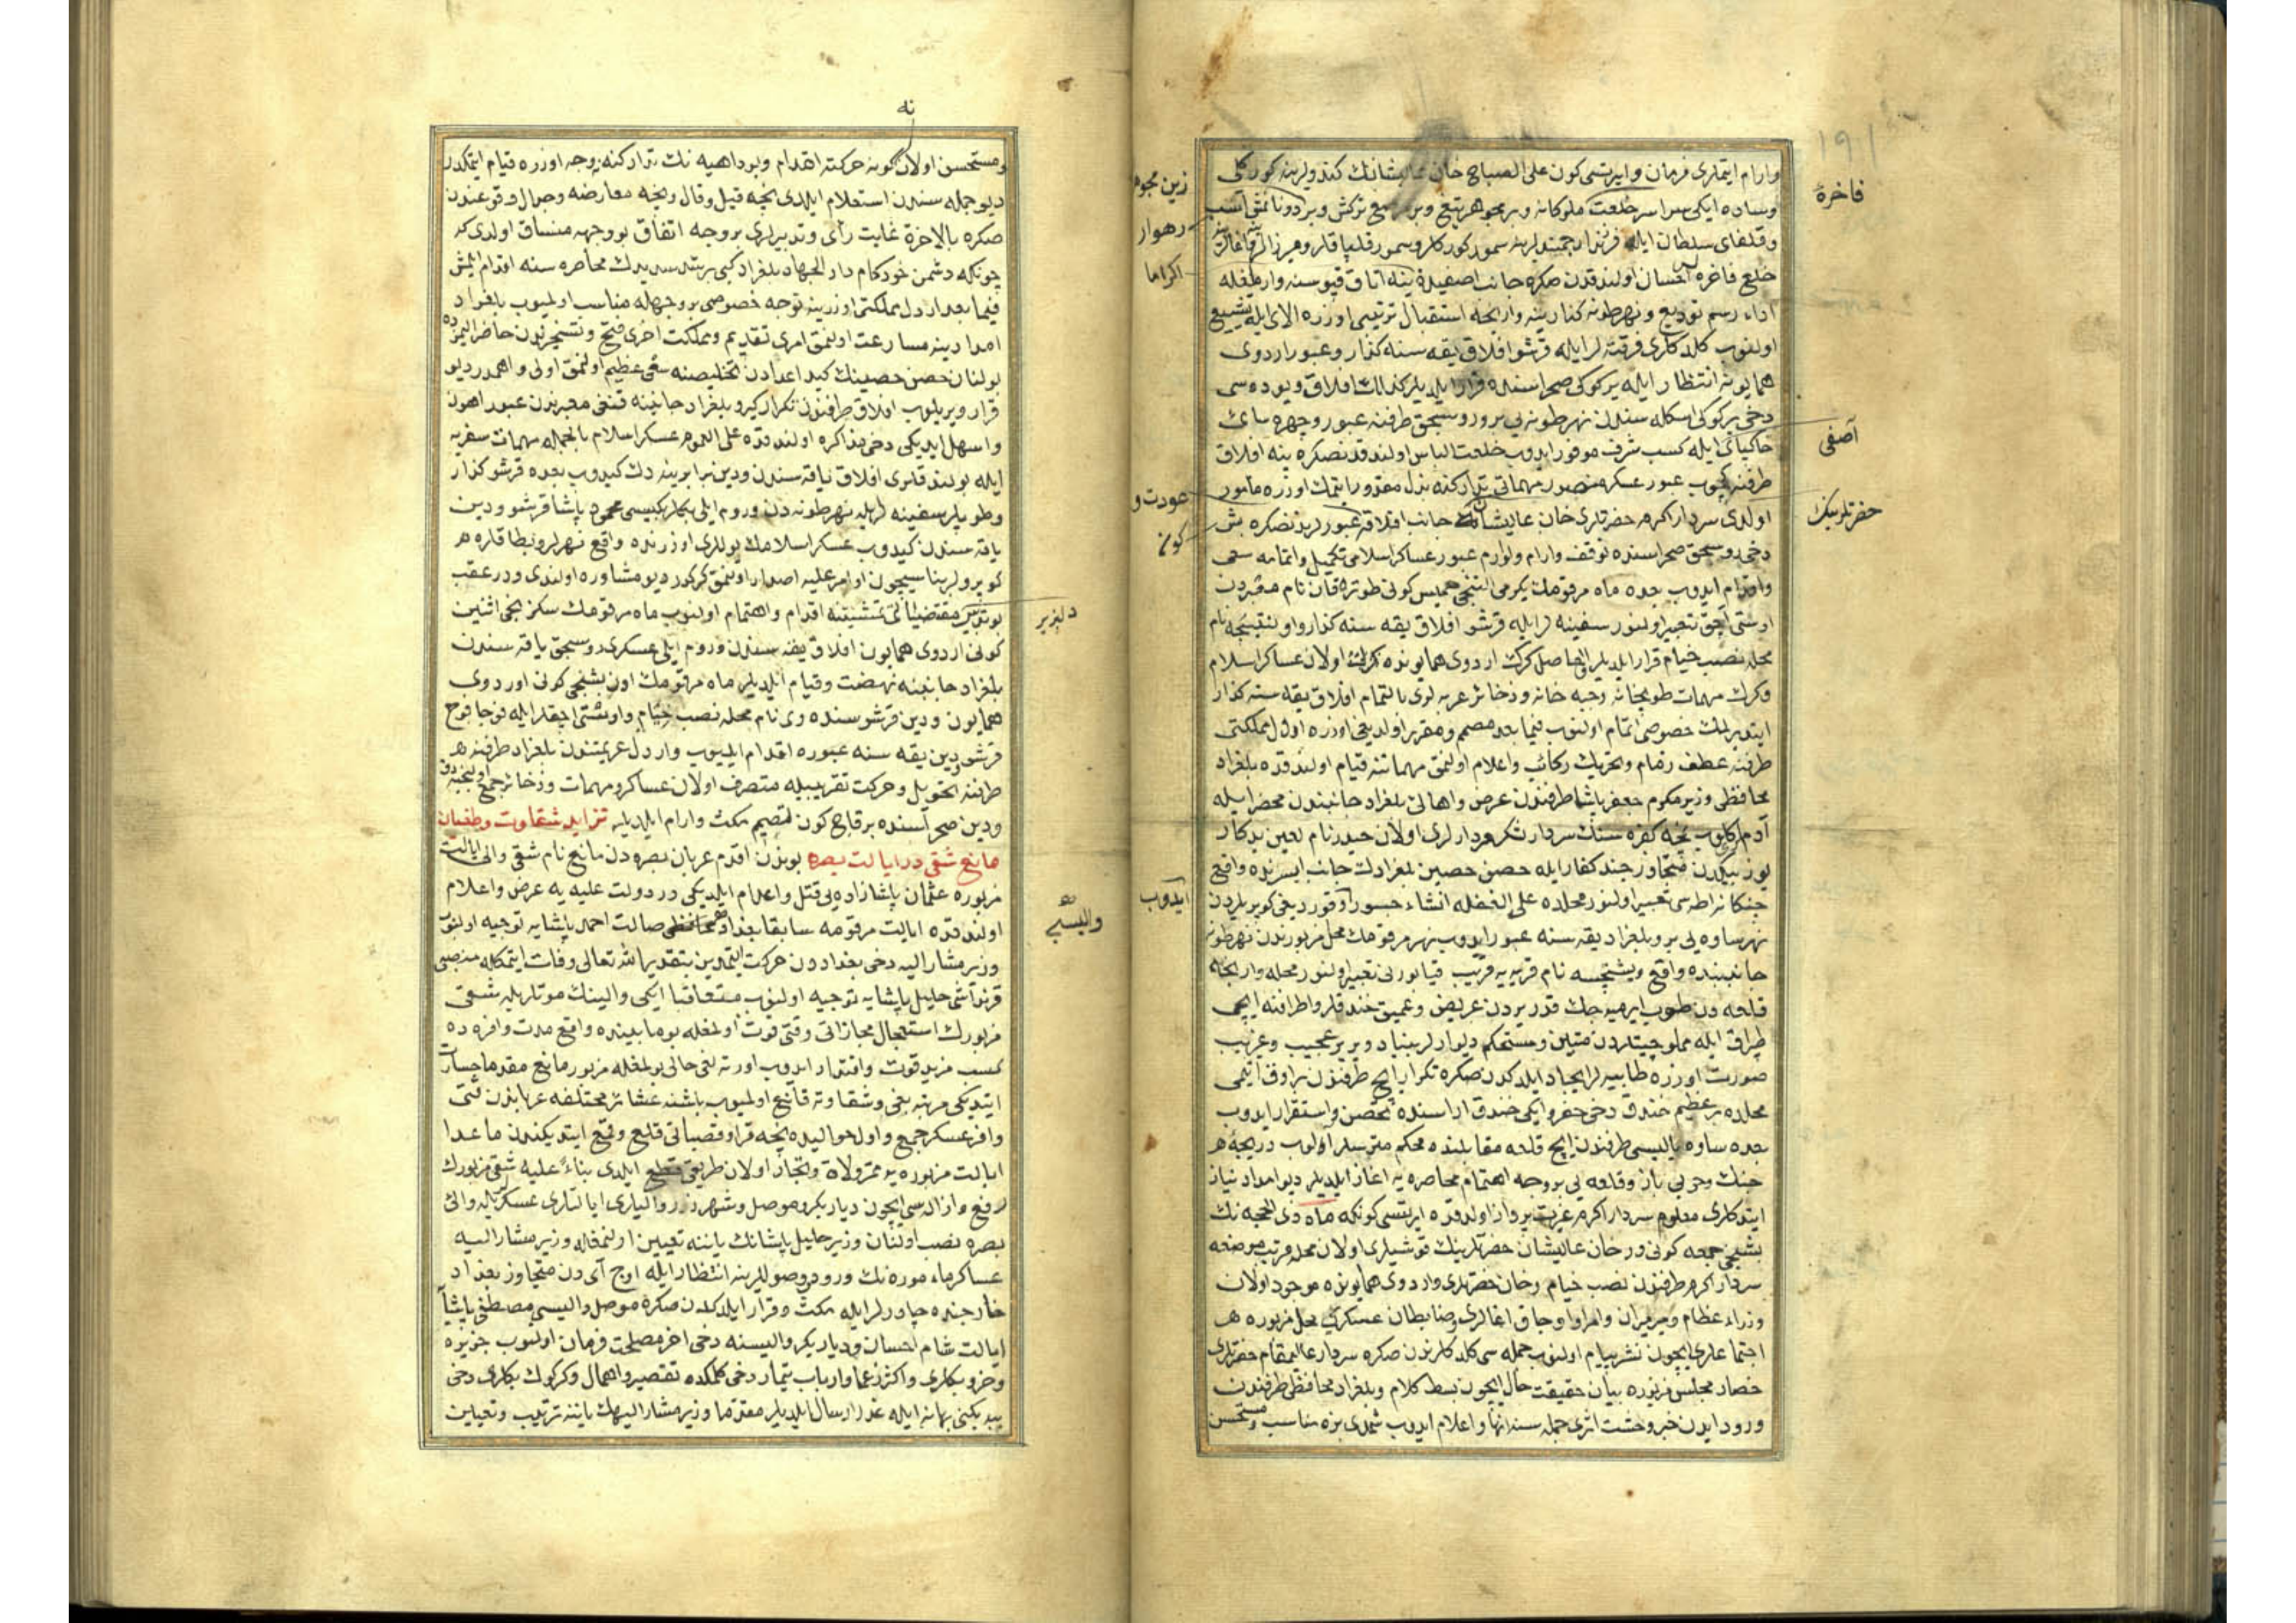 وارام ایتملری فرمان وایرتسی کون علی الصباح خان عالیشانك کندولرینه کورکلی
وساده ایکی سراسر خلعت ملوکانه وبر مجوهر تیغ وبر مرصع ترکش وبر دونانمش اسب
وقلغای سلطان ایله فرزند ارجمندلرینه سمور کورکلر وسمور قلپاقلر ومیرزالر
خلع فاخره احسان اولندقدن صکره جانب اصفیدن ینه اتاق قپوسنه وارمغله
اداء رسم تودیع ونهر طونه کنارینه وارنجه استقبال ترتیبی اوزره الای ایله تشییع
اولنوب کلدکلری فرقته لر ایله قرشو افلاق یقه سنه کذار وعبور اردوی
همایونه انتظار ایله یرکوکی صحراسنده قرار ایلدیلر کذلك افلاق ویوده سی
دخی یرکوکی اسکله سندن نهر طونه یی مرور وروسجق طرفنه عبور وچهره سای
خاکپای ایله کسب شرف موفور ایدوب خلعت الباس اولندقدنصکره ینه افلاق
طرفنه کچوب عبور عسکر منصور مهماتی تدارکنه بذل مقدور ایتمك اوزره مامور
اولدی سردار اکرم حضرتلری خان عالیشانك جانب افلاقه عبورلرندنصکره بش
دخی روسجق صحراسنده توقف وارام ولوازم عبور عساکر اسلامی تکمیل واتمامه سعی
واقدام ایدوب بعده ماه مرقومك یکرمی التنجی خمیس کونی طوتره قان نام معبردن
اوستی اچق تعبیر اولنور سفینه لر ایله قرشو افلاق یقه سنه کذار واولتنیجه نام
محله نصب خیام قرار ایلدیلر الحاصل کرك اردوی همایونده اولان عساکر اسلام
وکرك مهمات طوپخانه وجبه خانه وذخائر عربه لری بالتمام افلاق یقه سنه کذار
ایتدیرلمك خصوصی اتمام اولنوب فیما بعد مصمم ومقرر اولدیغی اوزره اردل مملکتی
طرفنه عطف زمام وتحریك رکائب واعلام اولنمق مهماتنه قیام اولندقده بلغراد
محافظی وزیر مکرم جعفر پاشا طرفندن عرض واهالئ بلغراد جانبندن محضر ایله
آدم کلوب نچه کفره سنك سردار شکره دارلری اولان حیدر نام لعین بدکار
یوز بیکدن متجاوز جند کفار ایله حصن حصین بلغرادك جانب ایسرنده واقع
چنکانه اطه سی تعبیر اولنور محلده علی الغفله انشاء جسور اوقوردیغی کوپریلردن
نهر ساوه یی برو بلغراد یقه سنه عبور ایدوب نهر مرقومك محل مزبورندن نهر طونه
جانبنده واقع ویشنجه نام قریه یه قریب تعبیر اولنور محله وارنجه
قلعه دن طوپ ایرمیه جك قدر یردن عریض وعمیق خندقلر واطرافنه ایچی
طپراق ایله مملو چیتلردن متین ومستحکم دیوارلر بنیاد ویر یر عجیب وغریب
صورت اوزره طابیه لر ایجاد ایلدکدن صکره تکرار ایچ طرفندن بر اوق اتیمی
محلده بر عظیم خندق دخی حفر وایکی خندق اراسنده تحصن واستقرار ایدوب
بعده ساوه یالیسی طرفندن ایچ قلعه مقابلنده محکم متریسلر اولوب دریچۀ
جنك وحربی باز وقلعه یی بر وجه اهتمام محاصره یه اغاز ایلدیلر دیو امداد نیاز
ایتدکلری معلوم سردار اکرم عزیمت پرواز اولدقده ایرتسی کونکه ماه ذی الحجه نك
بشنجی جمعه کونی در خان عالیشان حضرتلرینك قونشیلری اولان محله مرتب موضعه
سردار اکرم طرفندن نصب خیام وخان حضرتلری واردوی همایونده موجود اولان
وزراء عظام ومیرمیران وامرا واوجاق اغالری وضابطان عسکری محل مزبوره
اجتماعلری ایچون نشر پیام اولنوب جمله سی کلدکلرندن صکره سردار عالیمقام حضرتلری
حضار مجلس مزبوره بیان حقیقت حال ایچون بسط کلام وبلغراد محافظی طرفندن
ورود ایدن خبر وحشت اثری جمله سنه انها واعلام ایدوب شمدی بزه مناسب ومستحسن
فاخرۀ
آصفی
حضرتلرینك
زین مجوهر
رهوار
اکراما
عودت و
کون
ایدوب
نه
ومستحسن اولان کونه حرکته اقدام وبو داهیه نك تدارکنه نه وجه اوزره قیام ایتمکدر
دیو جمله سندن استعلام ایلدی نچه قیل وقال ونچه معارضه وجدال وقوعندن
صکره بالاخره غایت رأی وتدبیرلری بر وجه اتفاق بو وجهه منساق اولدی که
چونکه دشمن خودکام دار الجهاد بلغراد کبی بر سدك محاصره سنه اقدام ایلمش
فیما بعد اردل مملکتی اوزرینه توجه خصوصی بر وجهله مناسب اولمیوب بلغراد
امدادینه مسارعت اولنمق امری تقدیم ومملکت اخری فتح وتسخیرندن حاضر الیمزده
بولنان حصن حصینك کید اعدادن تخلیصنه سعی عظیم اولنمق اولی واهمدر دیو
قرار ویریلوب افلاق طرفندن تکرار کیرو بلغراد جانبنه قنغی معبردن عبور اهون
واسهل ایدیکی دخی مذاکره اولندقده علی العموم عسکر اسلام بالجمله مهمات سفریه
ایله بولندقلری افلاق یاقه سندن ودین برابرینه دك کیدوب بعده قرشو کذار
وطوپلر سفینه لر ایله نهر طونه دن وروم ایلی بکلربکیسی محمود پاشا قرشو ودین
یاقه سندن کیدوب عسکر اسلامك یوللری اوزرنده واقع نهرلر وبطاقلره
کوپرولر بناسیچون اوامر علیه اصدار اولنمق کرکدر دیو مشاوره اولندی ودر عقب
بو تدبیر مقتضیاتی تمشیتنه اقدام واهتمام اولنوب ماه مرقومك سکزنجی اثنین
کونی اردوی همایون افلاق یقه سندن وروم ایلی عسکری روسجق یاقه سندن
بلغراد جانبنه نهضت وقیام ایلدیلر ماه مرقومك اون بشنجی کونی اوردوی
همایون ودین قرشوسنده وی نام محله نصب خیام واوستی اچقلر ایله فوجا فوج
قرشو ودین یقه سنه عبوره اقدام ایلیوب واردل عزیمتندن بلغراد طرفنه
طرفنه تحویل وحرکت تقریبیله متصرف اولان عساکر ومهمات وذخائر جمع اولنجیه دك
ودین صحراسنده بر قاچ کون تصمیم مکث وارام ایلدیلر تزاید شقاوت وطغیان
مانع شقی در ایالت بصره بوندن اقدم عربان بصره دن مانع نام شقی والئ ایالت
مزبوره عثمان پاشازاده یی قتل واعدام ایلدیکی در دولت علیه یه عرض واعلام
اولندقده ایالت مرقومه سابقا بغداد محافظی صالت احمد پاشایه توجیه اولنوب
وزیر مشار الیه دخی بغداددن حرکت ایتمدین بتقدیر الله تعالی وفات ایتمکله منصبی
قرنداشی خلیل پاشایه توجیه اولنوب متعاقبا ایکی والینك موتلریله شقئ
مزبورك استیصال مجازاتی وقتی فوت اولمغله بو مابینده واقع مدت وافره ده
کسب مزید قوت واقتدار ایدوب اورته لغی خالی بولمغله مزبور مانع مقدما جسارت
ایتدیکی مرتبه بغی وشقاوته قانع اولمیوب باشنه عشائر مختلفه عرباندن حتی
وافر عسکر جمع واول حوالیده نچه قرا وقصباتی قلع وقمع ایتدیکندن ماعدا
ایالت مزبوره یه ممر ولاة وتجار اولان طریق قطع ایلدی بناءً علیه شقئ مزبورك
رفع وازاله سی ایچون دیاربکر وموصل وشهرزور والیلری ایالتلری عسکریله والئ
بصره نصب اولنان وزیر خلیل پاشانك یاننه تعیین اولنمغله وزیر مشار الیه
عساکر مأموره نك ورود ووصوللرینه انتظار ایله اوچ آی دن متجاوز بغداد
خارجنده چادرلر ایله مکث وقرار ایلدکدن صکره موصل والیسی مصطفی پاشا
ایالت شام احسان ودیاربکر والیسنه دخی اخر مصلحت فرمان اولنوب جزیره
وخزو بکلری واکثر زعما وارباب تیمار دخی کلمکده تقصیر واهمال وکرکوك بکلری دخی
برر بهانه ایله عذر ارسال ایلدیلر مقدما وزیر مشار الیهك یاننه ترتیب وتعیین
دلپذیر
والیسی